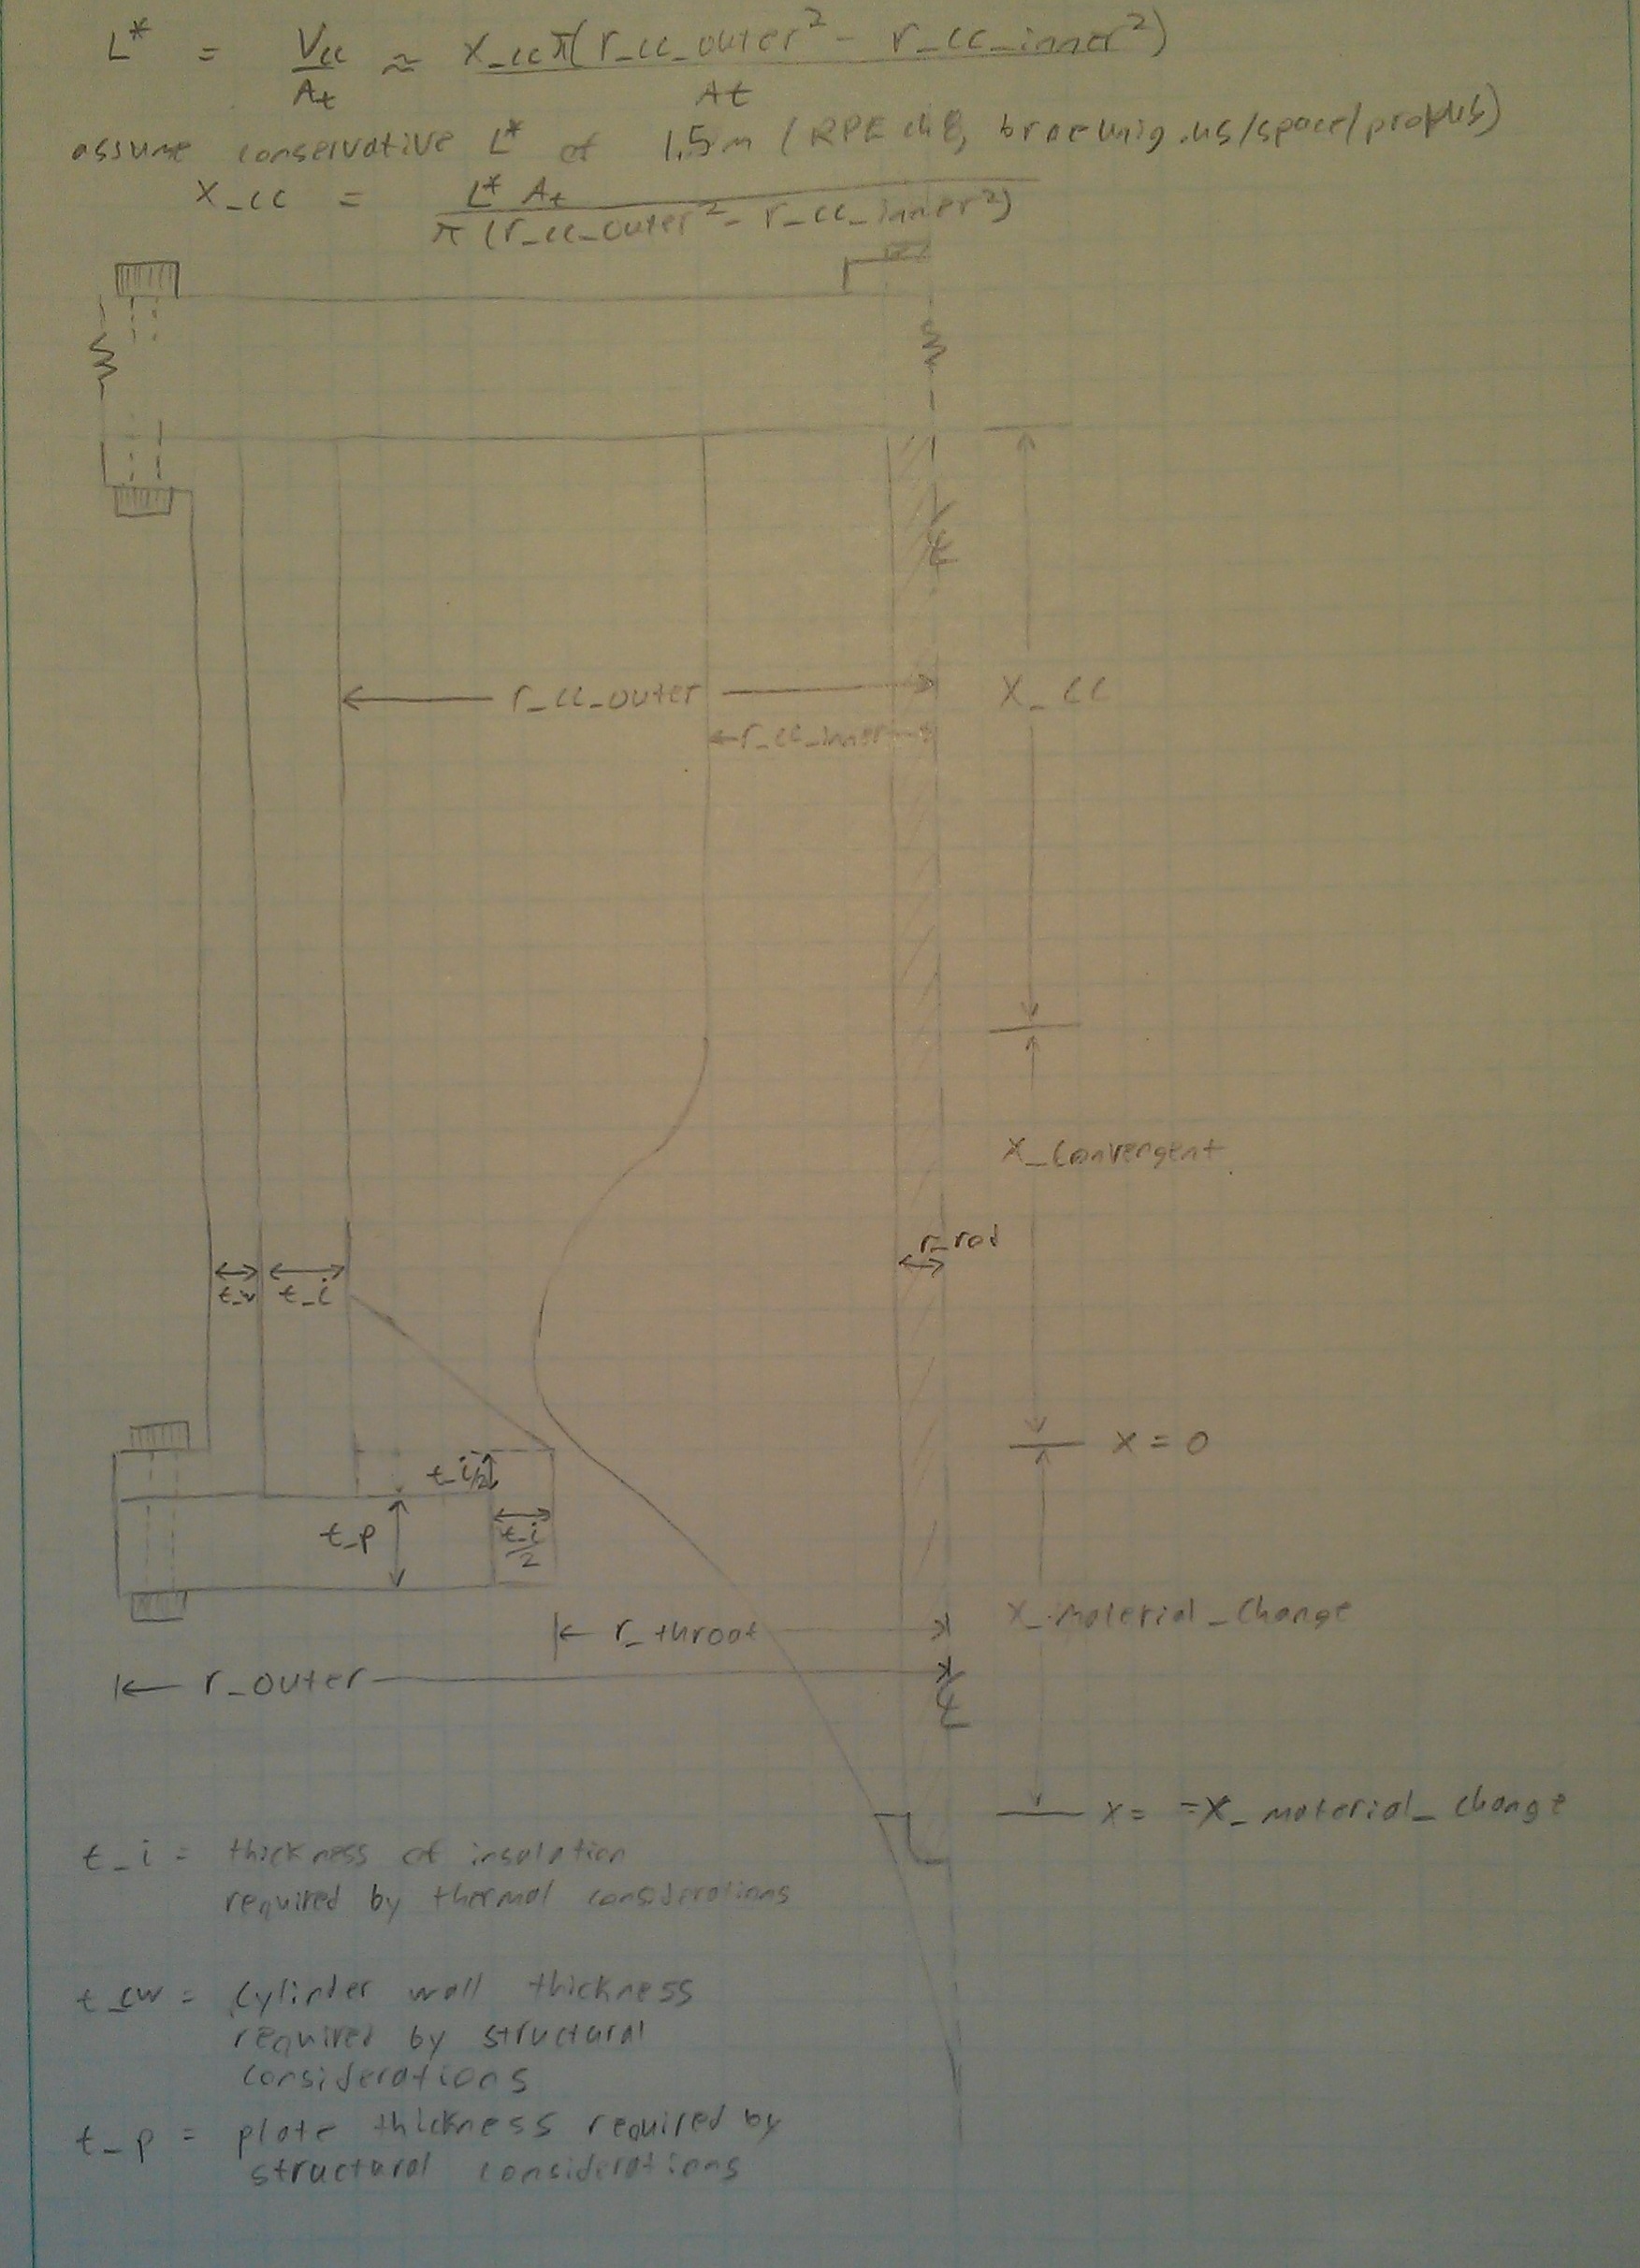 L* = Vcc/At ≈ x_cc π(r_cc_outer² - r_cc_inner²)/At
assume conservative L* of 1.5m (RPE ch 8, braeunig.us/space/
x_cc = L* At / π (r_cc_outer² - r_cc_inner²)
r_cc_outer
x_cc
r_cc_inner
x_convergent
r_rod
t_w
t_i
x = 0
t_i/2
t_p
t_i/2
r_throat
x_material_change
r_outer
x = -x_material_change
t_i = thickness of insulation
required by thermal considerations
t_cw = cylinder wall thickness
required by structural
considerations
t_p = plate thickness required by
structural considerations